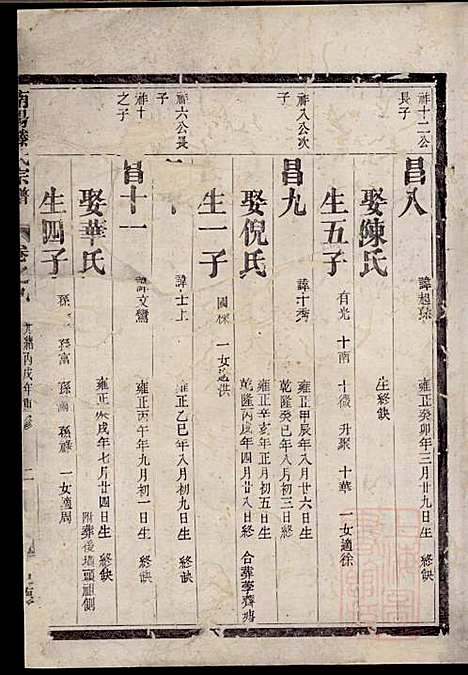 祥十二公
長子
昌八
諱起孫
雍正癸卯年三月廿九日生
終缺
娶陳氏
生終缺
生五子
有光
十南
十徵
升聚
十華
一女適徐
祥八公次
子
昌九
諱十秀
雍正甲辰年八月廿六日生
乾隆癸巳年八月初三日終
娶倪氏
雍正辛亥年正月初五日生
乾隆丙戌年四月廿八日終
合葬學齊塘
生一子
國保
一女適洪
祥六公長
子
諱士上
雍正乙巳年八月初九日生
終缺
祥十
之子
昌十一
諱文鸞
雍正丙午年九月初一日生
終缺
娶華氏
雍正
年七月廿四日生
終缺
附葬後塘頭祖側
生四子
孫
孫富
孫
孫
一女適周
南陽
氏宗譜
卷之
丙戌年重修
二